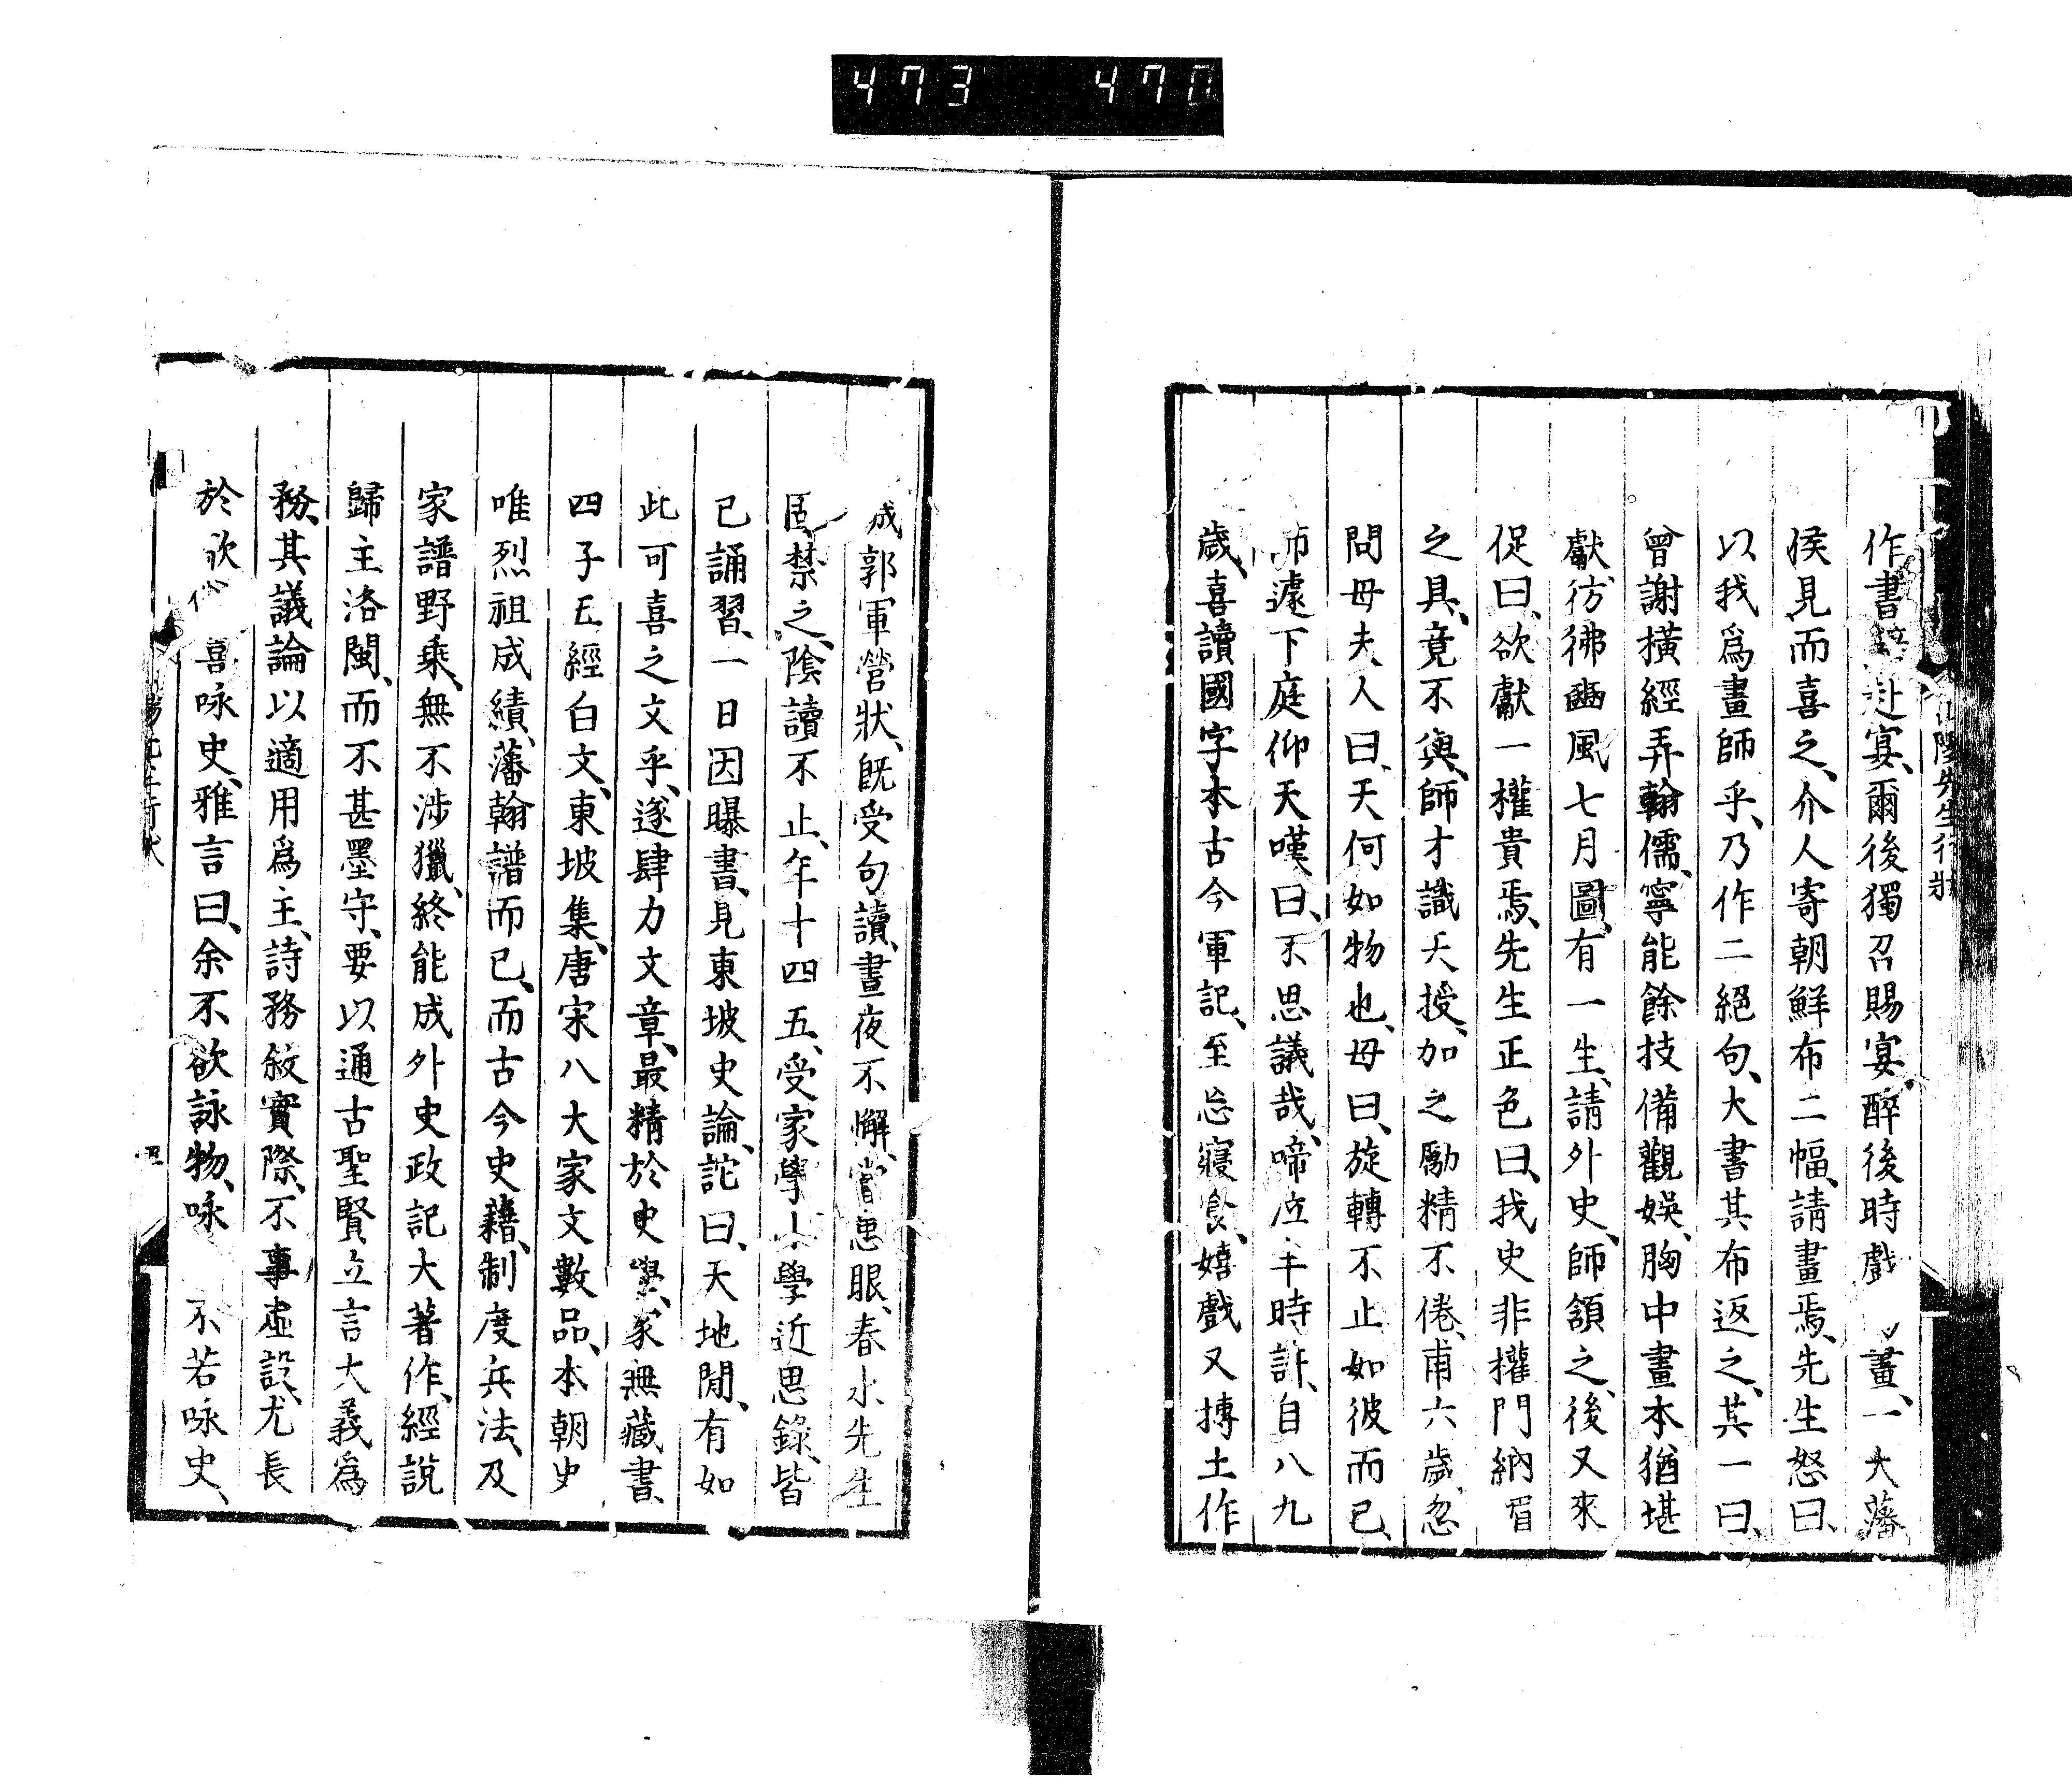 473 470
陽先生行狀
作書辭赴宴、爾後獨召賜宴、醉後時戲畫、一大藩
侯見而喜之、介人寄朝鮮布二幅、請畫焉、先生怒曰、
以我爲畫師乎、乃作二絕句、大書其布返之、其一曰、
曾謝橫經弄翰儒、寧能餘技備觀娛、胸中畫本猶堪
獻、彷彿豳風七月圖、有一生、請外史、師頷之、後又來
促曰、欲獻一權貴焉、先生正色曰、我史非權門納
之具、竟不與、師才識天授、加之勵精不倦、甫六歲、忽
問母夫人曰、天何如物也、母曰、旋轉不止如彼而已、
師遽下庭仰天嘆曰、不思議哉、啼泣半時許、自八九
歲、喜讀國字本古今軍記、至忘寢食、嬉戲又摶土作
城郭軍營狀、旣受句讀、晝夜不懈、嘗患眼、春水先生
固禁之、陰讀不止、年十四五、受家學小學近思錄、皆
已誦習、一日因曝書、見東坡史論、詫曰、天地閒、有如
此可喜之文乎、遂肆力文章、最精於史學、家無藏書、
四子五經白文、東坡集、唐宋八大家文數品、本朝史
唯烈祖成績、藩翰譜而已、而古今史籍、制度兵法、及
家譜野乘、無不涉獵、終能成外史政記大著作、經說
歸主洛閩、而不甚墨守、要以通古聖賢立言大義爲
務、其議論以適用爲主、詩務敘實際、不事虛設、尤長
於喜咏史、雅言曰、余不欲詠物、咏不若咏史、